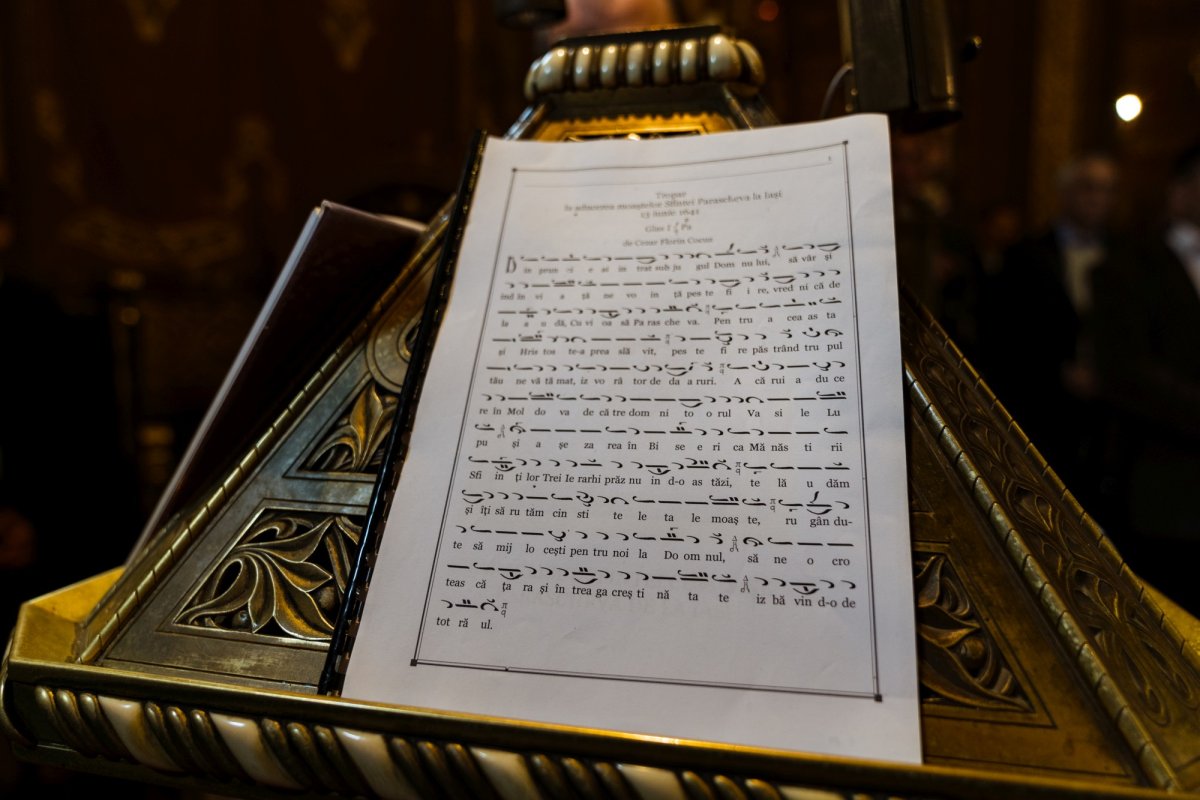 1
Tropar
la aducerea moaștelor Sfintei Parascheva la Iași
13 iunie 1641
Glas I Pa
de Cezar Florin Cocuz
D in prun ci e ai in trat sub ju gul Dom nu lui, să vâr și
ind în vi a ță ne vo in ță pes te fi i re, vred ni că de
le a u dă, Cu vi oa să Pa ras che va. Pen tru a cea as ta
și Hris tos te-a prea slă vit, pes te fi re păs trând tru pul
tău ne vă tă mat, iz vo râ tor de da a ruri. A că rui a du ce
re în Mol do va de că tre dom ni to o rul Va si le Lu
pu și a șe za rea în Bi se e ri ca Mă năs ti rii
Sfi in ți lor Trei Ie rarhi prăz nu in d-o as tăzi, te lă u dăm
și îți să ru tăm cin sti te le ta le moaș te, ru gân du-
te să mij lo cești pen tru noi la Do om nul, să ne o cro
teas că ța ra și în trea ga creș ti nă ta te iz bă vin d-o de
tot ră ul.